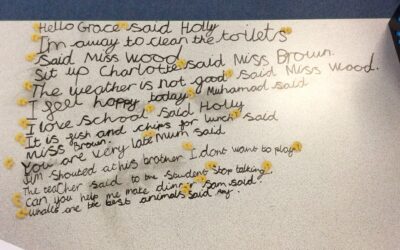 "Hello Grace" said Holly
"I'm away to clean the toilets"
said Miss Wood
"Sit up Charlotte" said Miss Brown.
"The weather is not good" said Miss Wood.
"I feel happy today" Muhamad said
"I love school" said Holly
"It is fish and chips for lunch" said
Miss Brown.
"You are very late" Mum said
Jim shouted at his brother "I dont want to play"
The teacher said to the student "Stop talking".
"Can you help me make dinner" Sam said.
"Whales are the best animals" said